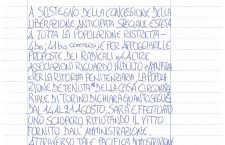 A SOSTEGNO DELLA CONCESSIONE DELLA
LIBERAZIONE ANTICIPATA SPECIALE ESTESA
A TUTTA LA POPOLAZIONE RISTRETTA -
4bis; 41bis compresi; E PER APPOGGIARE LE
PROPOSTE DEI RADICALI E ALTRE
ASSOCIAZIONI RIGUARDO INDULTO e AMNISTIA
E PER LA RIFORMA PENITENZIARIA, LA POPOLA
ZIONE DETENUTA DELLA CASA CIRCONDA
RIALE DI TORINO DICHIARA QUANTO SEGUE:
DAL 14 AL 21 AGOSTO SARÀ EFFETTUATO
UNO SCIOPERO RIFIUTANDO IL VITTO
FORNITO DALL'AMMINISTRAZIONE,
ATTRAVERSO TALE PACIFICA DIMOSTRAZIONE